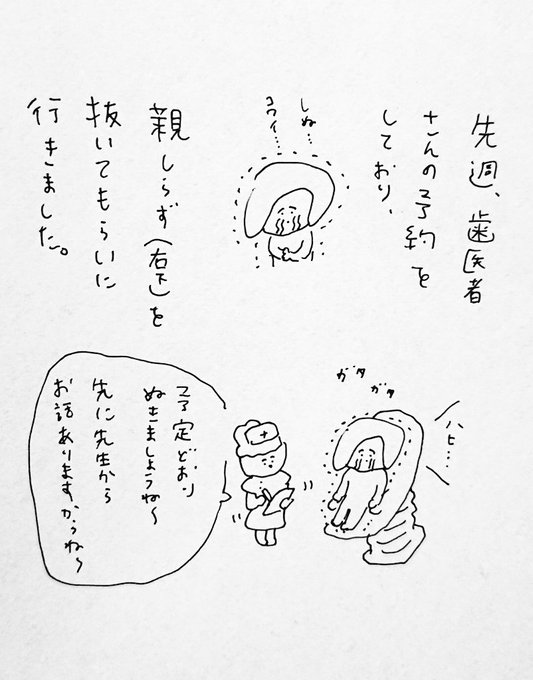 先週、歯医者
さんの予約を
しており、
しぬ…
コワイ…
親しらず(右下)を
抜いてもらいに
行きました。
ハヒ…
ガタ
ガタ
予定どおり
ぬきましょうね〜
先に先生から
お話ありますからね〜